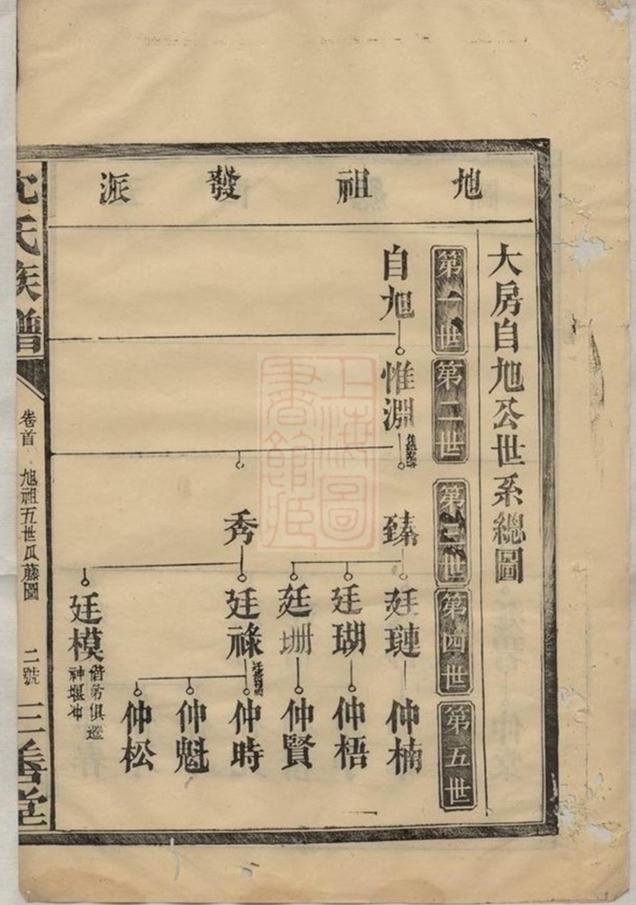 地祖發派
大房自旭公世系總圖
第一世
第二世
第三世
第四世
第五世
自旭
惟淵
臻
秀
廷璉
廷瑚
廷珊
廷祿
廷模
仲楠
仲梧
仲賢
仲時
仲魁
仲松
偕弟俱遷
神堰冲
沈氏族譜
卷首
旭祖五世瓜藤圖
二號
三善堂
上海圖書館藏